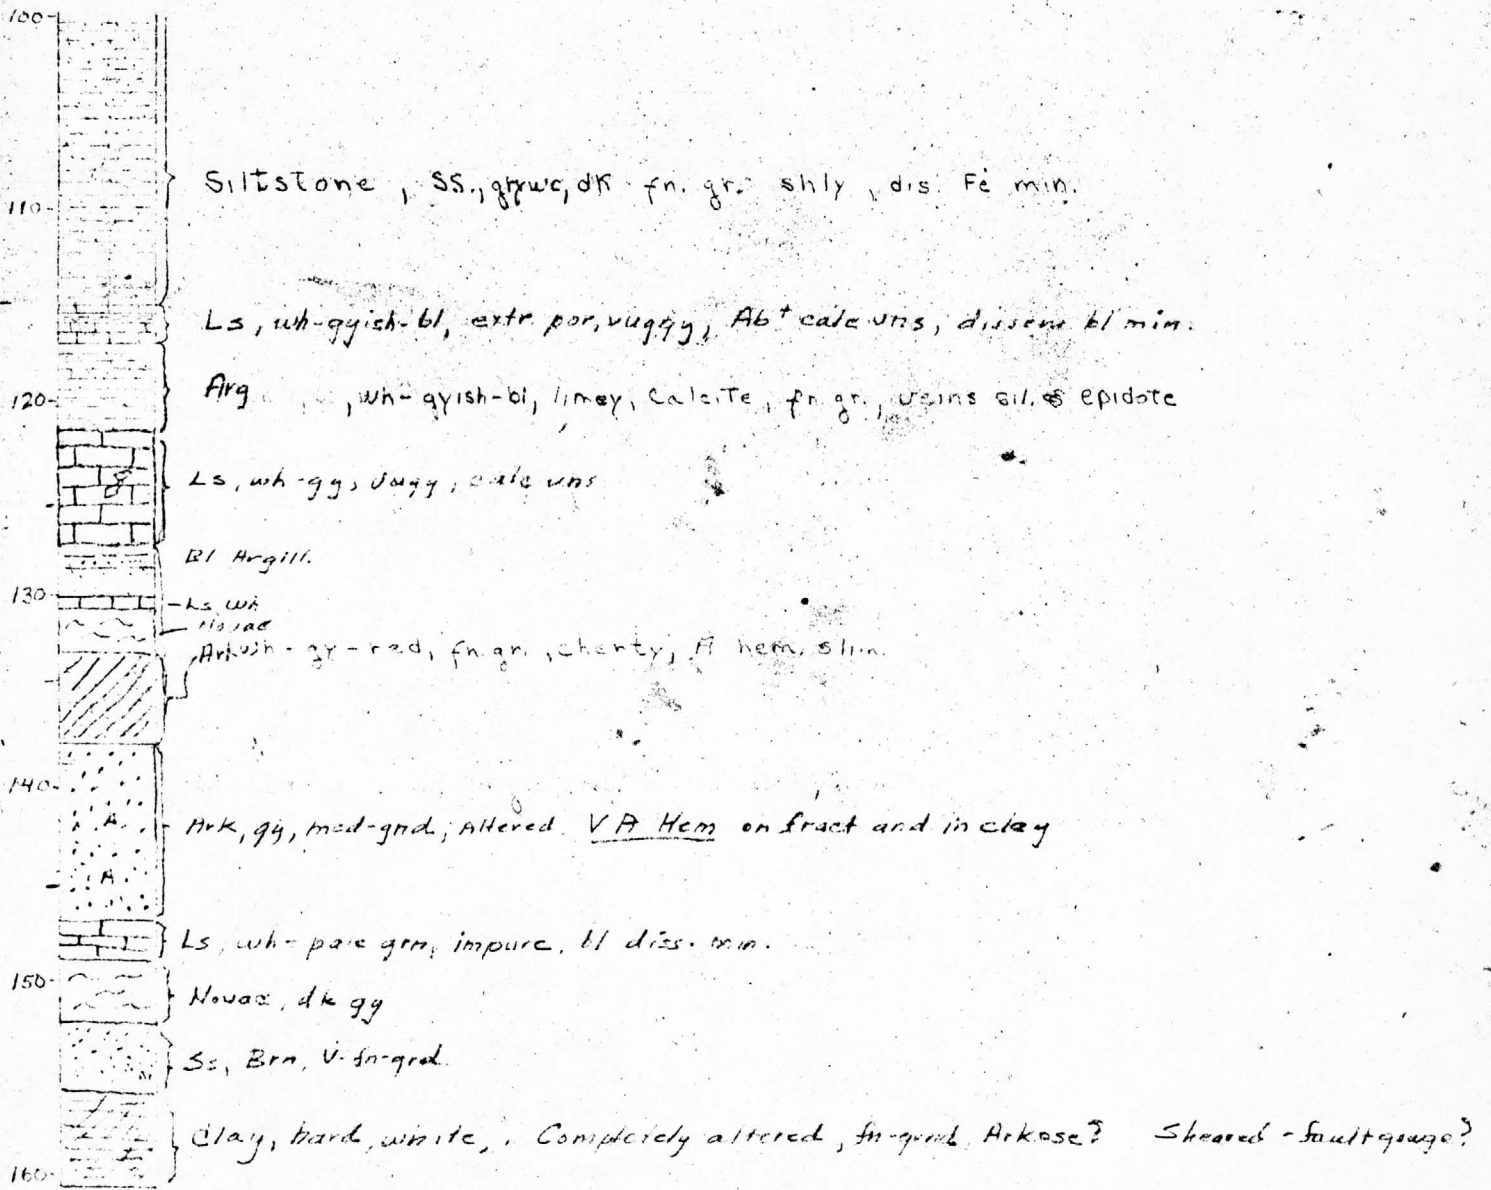 100
Siltstone, SS., grywc, dk fn. gr. shly, dis. Fe min.
110
Ls, wh-gyish-bl, extr. por, vuggy, Ab+ calc vns, dissem bl min.
Arg , wh-gyish-bl, limey, Calcite, fn. gr., veins sil. & epidote
120
Ls, wh-gy, vugy, calc vns
Bl Argill.
130
Ls, wh
Novac
Ark wh-gy-red, fn. gr., cherty, A hem. slim.
140
A
Ark, gy, med-grd, Altered. VA Hem on fract and in clay
A
Ls, wh-pale grn, impure, bl diss. min.
150
Novac, dk gy
Ss, Brn, V-fn-grd.
Clay, hard, white, . Completely altered, fn-grnd Arkose? Sheared - fault gouge?
160